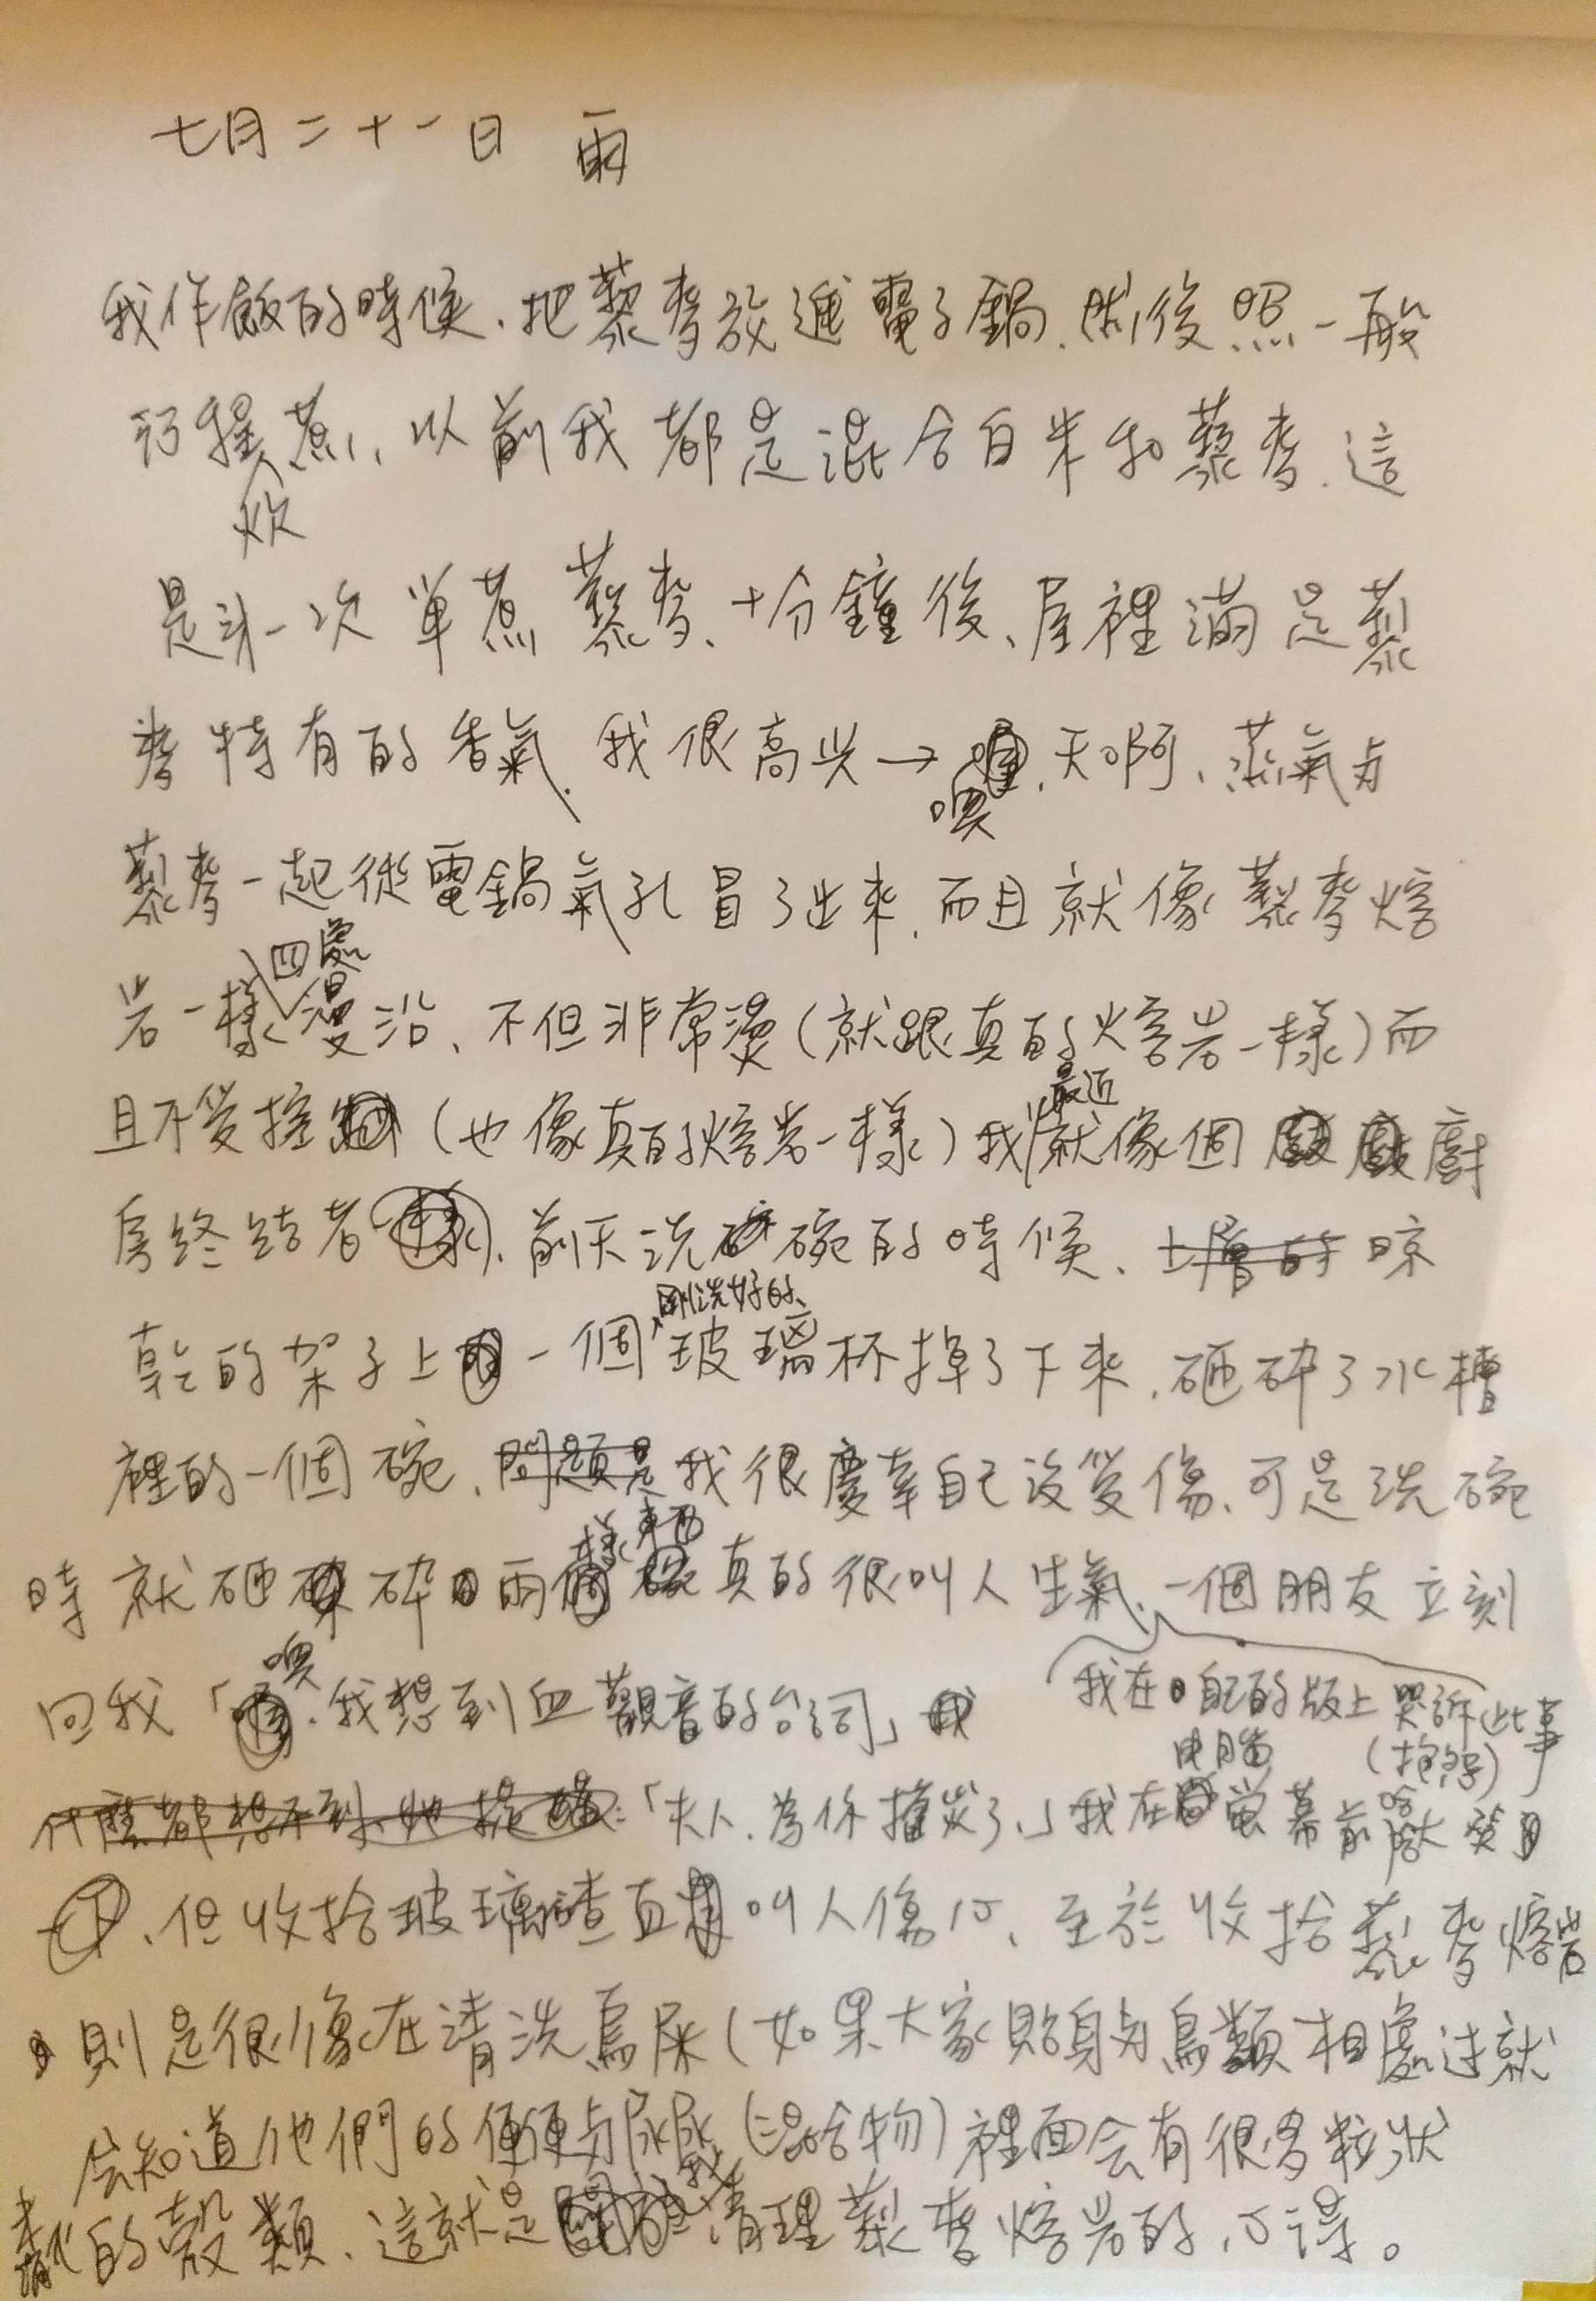 七月二十一日 雨
我作飯的時候、把藜麥放進電子鍋、然後照一般
行程煮、以前我都是混合白米和藜麥、這
炊
是第一次單煮藜麥、十分鐘後、屋裡滿是藜
麥特有的香氣、我很高兴→噢、天啊、蒸氣与
藜麥一起從電鍋氣孔冒了出來、而且就像藜麥熔
岩一樣四處漫沿、不但非常燙(就跟真的熔岩一樣)而
且不受控制(也像真的熔岩一樣)我最近就像個廚
房終結者、前天洗碗的時候、上層的晾
乾的架子上一個剛洗好的玻璃杯掉了下來、砸碎了水槽
裡的一個碗、問題是我很慶幸自己沒受傷、可是洗碗
時就砸碎兩樣東西真的很叫人生氣、一個朋友立刻
我在自己的版上哭訴此事
(抱怨)
回我「噢、我想到血觀音的台詞」
什麼都想不到、她提醒:「夫人、為你摧災了」我在电腦螢幕前哈哈大笑
、但收拾玻璃碴直叫人傷心、至於收拾藜麥熔岩
則是很像在清洗鳥屎(如果大家貼身与鳥類相處过就
会知道他們的便便与尿尿(混合物)裡面会有很多粒狀
的殼類、這就是我清理藜麥熔岩的心得。